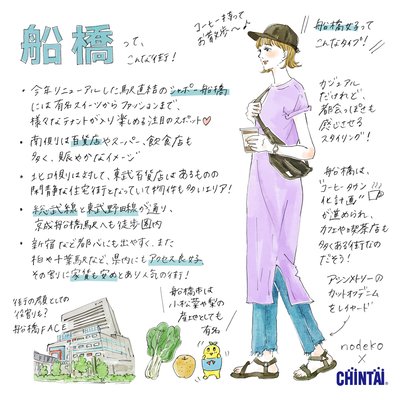 船橋って、
こんな街!
・今年リニューアルした駅直結のシャポー船橋
には有名スイーツからファッションまで、
様々なテナントが入り楽しめる注目のスポット♡
・南側は百貨店やスーパー、飲食店も
多く、賑やかなイメージ
・北口側は対して、東武百貨店はあるものの
閑静な住宅街となっていて物件も多いエリア!
・総武線と東武野田線が通り、
京成船橋駅へも徒歩圏内
・新宿など都心にも出やすく、また
柏や千葉駅など、県内にもアクセス良好
その割に家賃も安めとあり人気の街!
街の顔としての
役割も?
船橋FACE
船橋市は
小松菜や梨の
産地としても
有名
コーヒー持って
お散歩〜♪
船橋女子って
こんなタイプ!
カジュアル
だけれど、
都会っぽさも
感じさせる
スタイリング!
船橋は、
"コーヒータウン
化計画"
が進められ、
カフェや喫茶店も
多くある街なの
だそう!
アシンメトリーの
カットオフデニム
をレイヤード
nodeko
×
CHINTAI